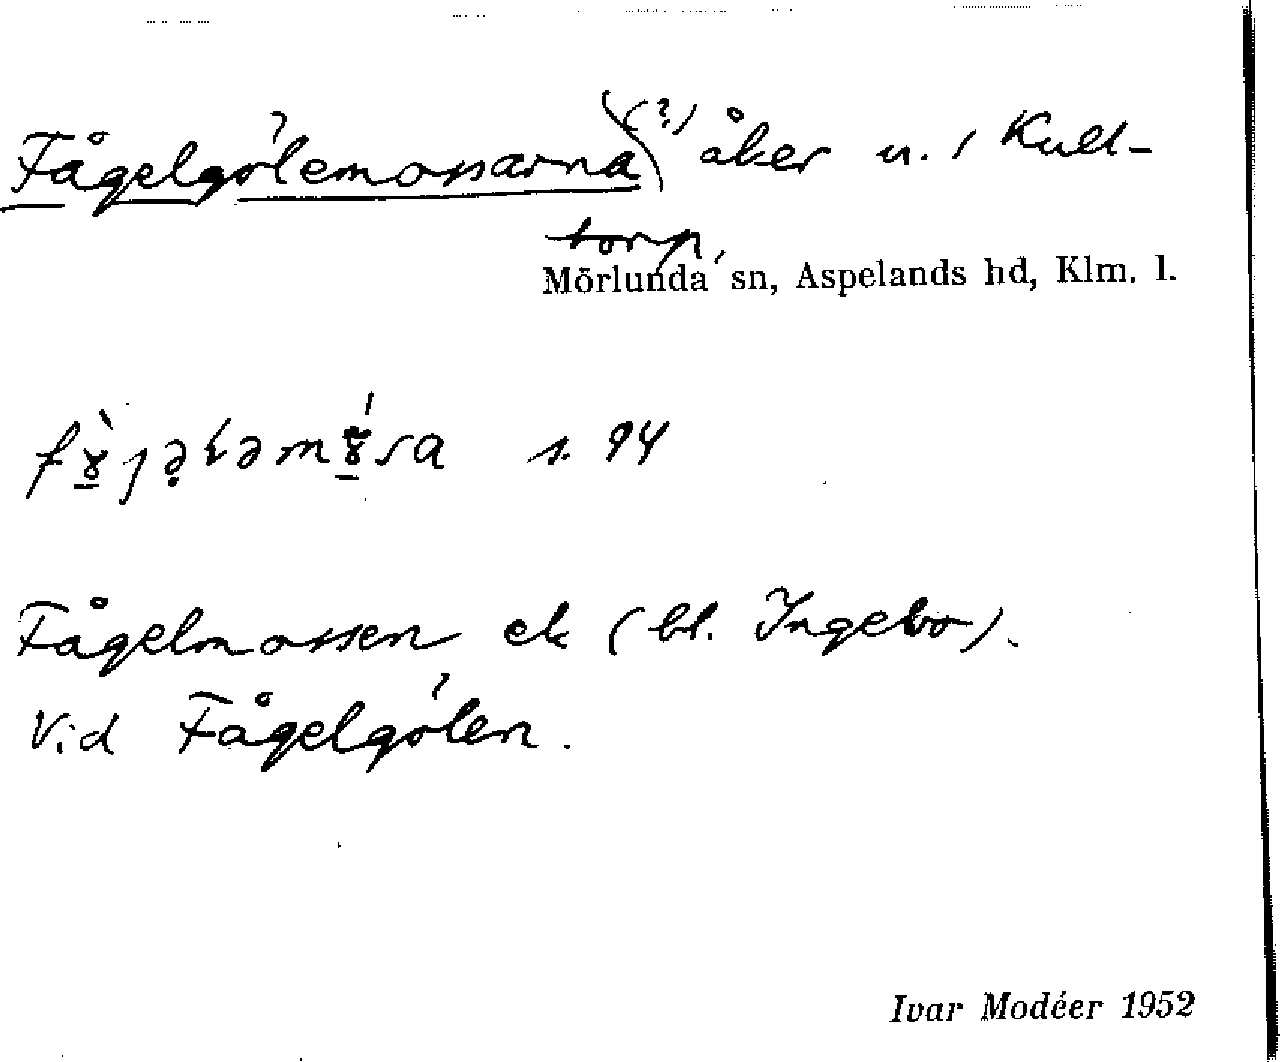 Fågelgölemossarna (?) åker u. / Kull-
torp,
Mörlunda sn, Aspelands hd, Klm. l.
s. 94
Fågelmossen ek (bl. Ingebo).
Vid Fågelgölen.
Ivar Modéer 1952